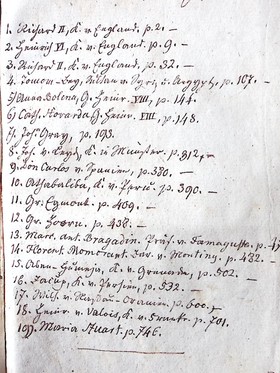 1. Richard II, K. v. England. p. 2. –
2. Heinrich VI, K. v. England. p. 9. –
3. Richard II, K. v. England. p. 32. –
4. Tomom-Bey, Sultan v. Syr. u. Aegypt. p. 107. –
5) Anna Bolena, G. Heinr. VIII, p. 144.
6) Cath. Howarda G. Heinr. VIII, p. 148.
7. Joh. Gray, p. 193.
8. Joh. v. Leyd. K. in Münster. p. 312
9. Don Carlos v. Spanien, p. 330. –
10. Athabaliba, K. v. Peru. p. 390. –
11. Gr. Egmont. p. 409. –
12. Gr. Hoorn. p. 438. –
13. Marc. Ant. Bragadin. Präf. v. Famagusta. p.
14. Florent. Momorant. Bar. v. Monting. p. 482. –
15. K. v. Granada, p. 502. –
16. Jacup, K. v. Persien, p. 532. –
17. Wilh. v. Nassau-Oranien. p. 600.
18. Heinr. v. Valois, K. v. Frankr. p. 701.
19. Maria Stuart. p. 746.